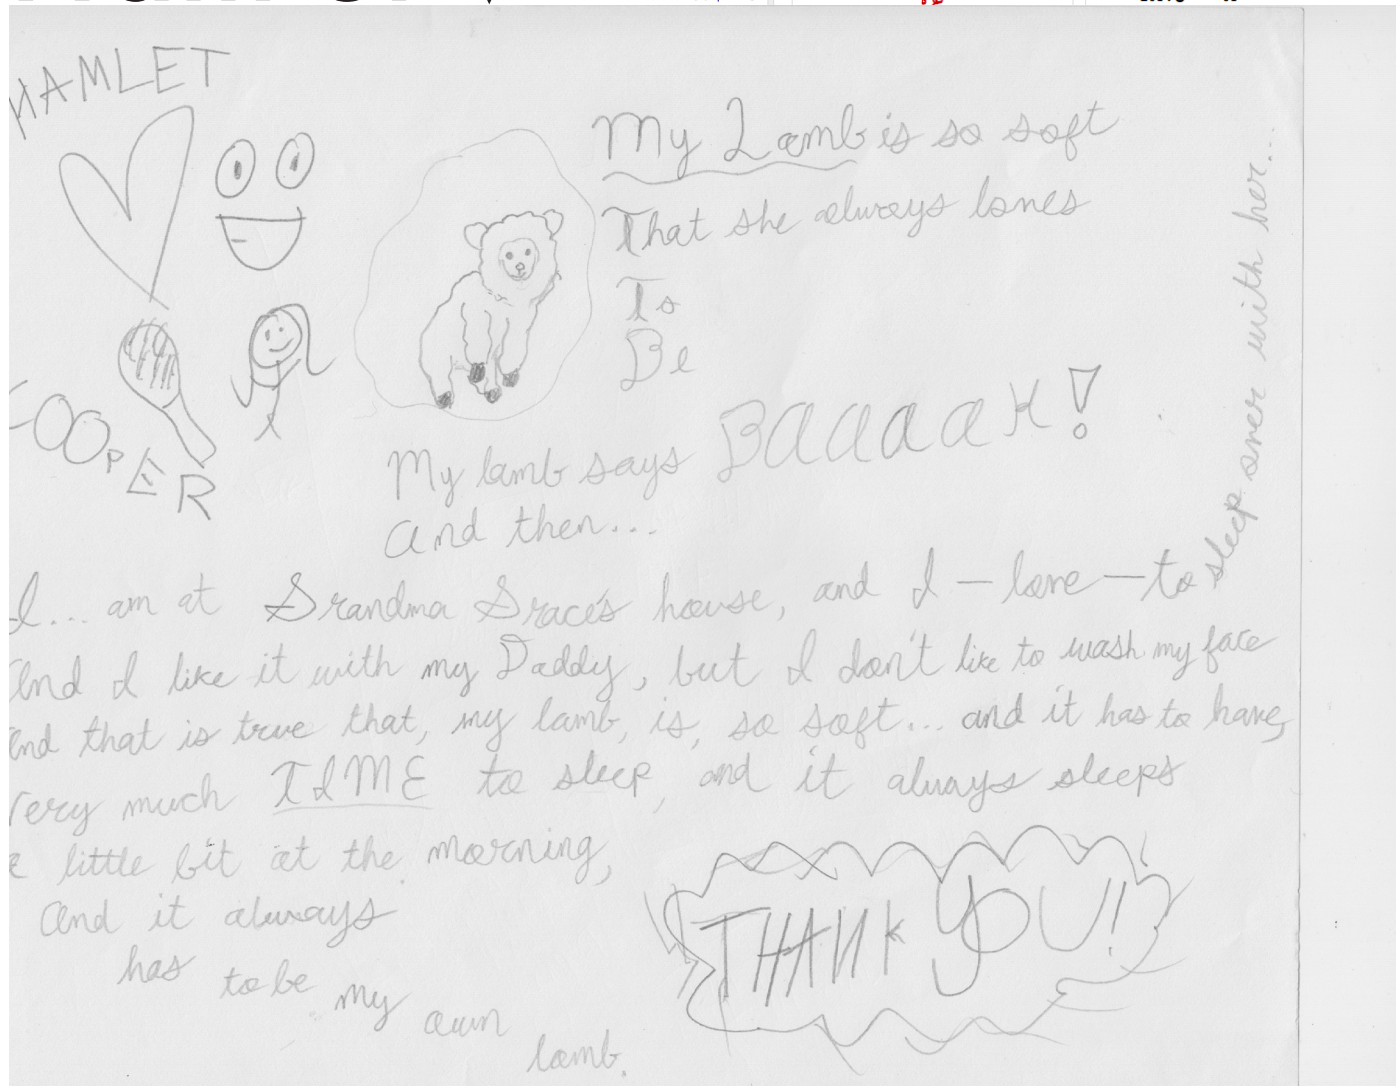 HAMLET
COOPER
My Lamb is so soft
That she always loves
To
Be
My lamb says BaaaaK!
and then...
I... am at Grandma Grace's house, and I - love - to sleep over with her...
And I like it with my Daddy, but I don't like to wash my face
And that is true that, my lamb, is, so soft... and it has to have,
very much TIME to sleep, and it always sleeps
a little bit at the morning,
and it always
has to be my own
lamb.
THANK YOU!!